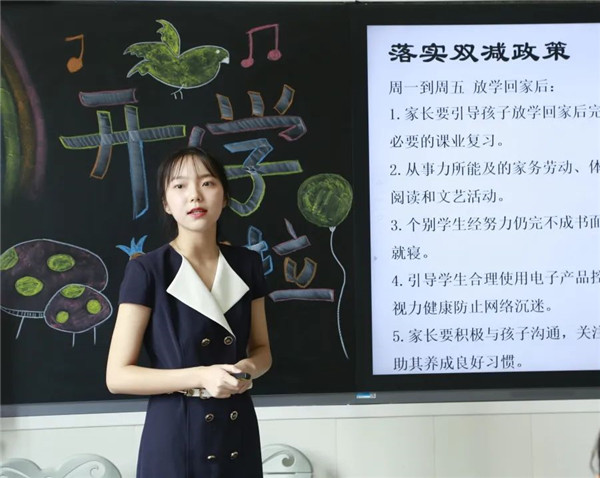 开学
啦
落实双减政策
周一到周五 放学回家后：
1. 家长要引导孩子放学回家后完
必要的课业复习。
2. 从事力所能及的家务劳动、体
阅读和文艺活动。
3. 个别学生经努力仍完不成书面
就寝。
4. 引导学生合理使用电子产品控
视力健康防止网络沉迷。
5. 家长要积极与孩子沟通，关注
助其养成良好习惯。